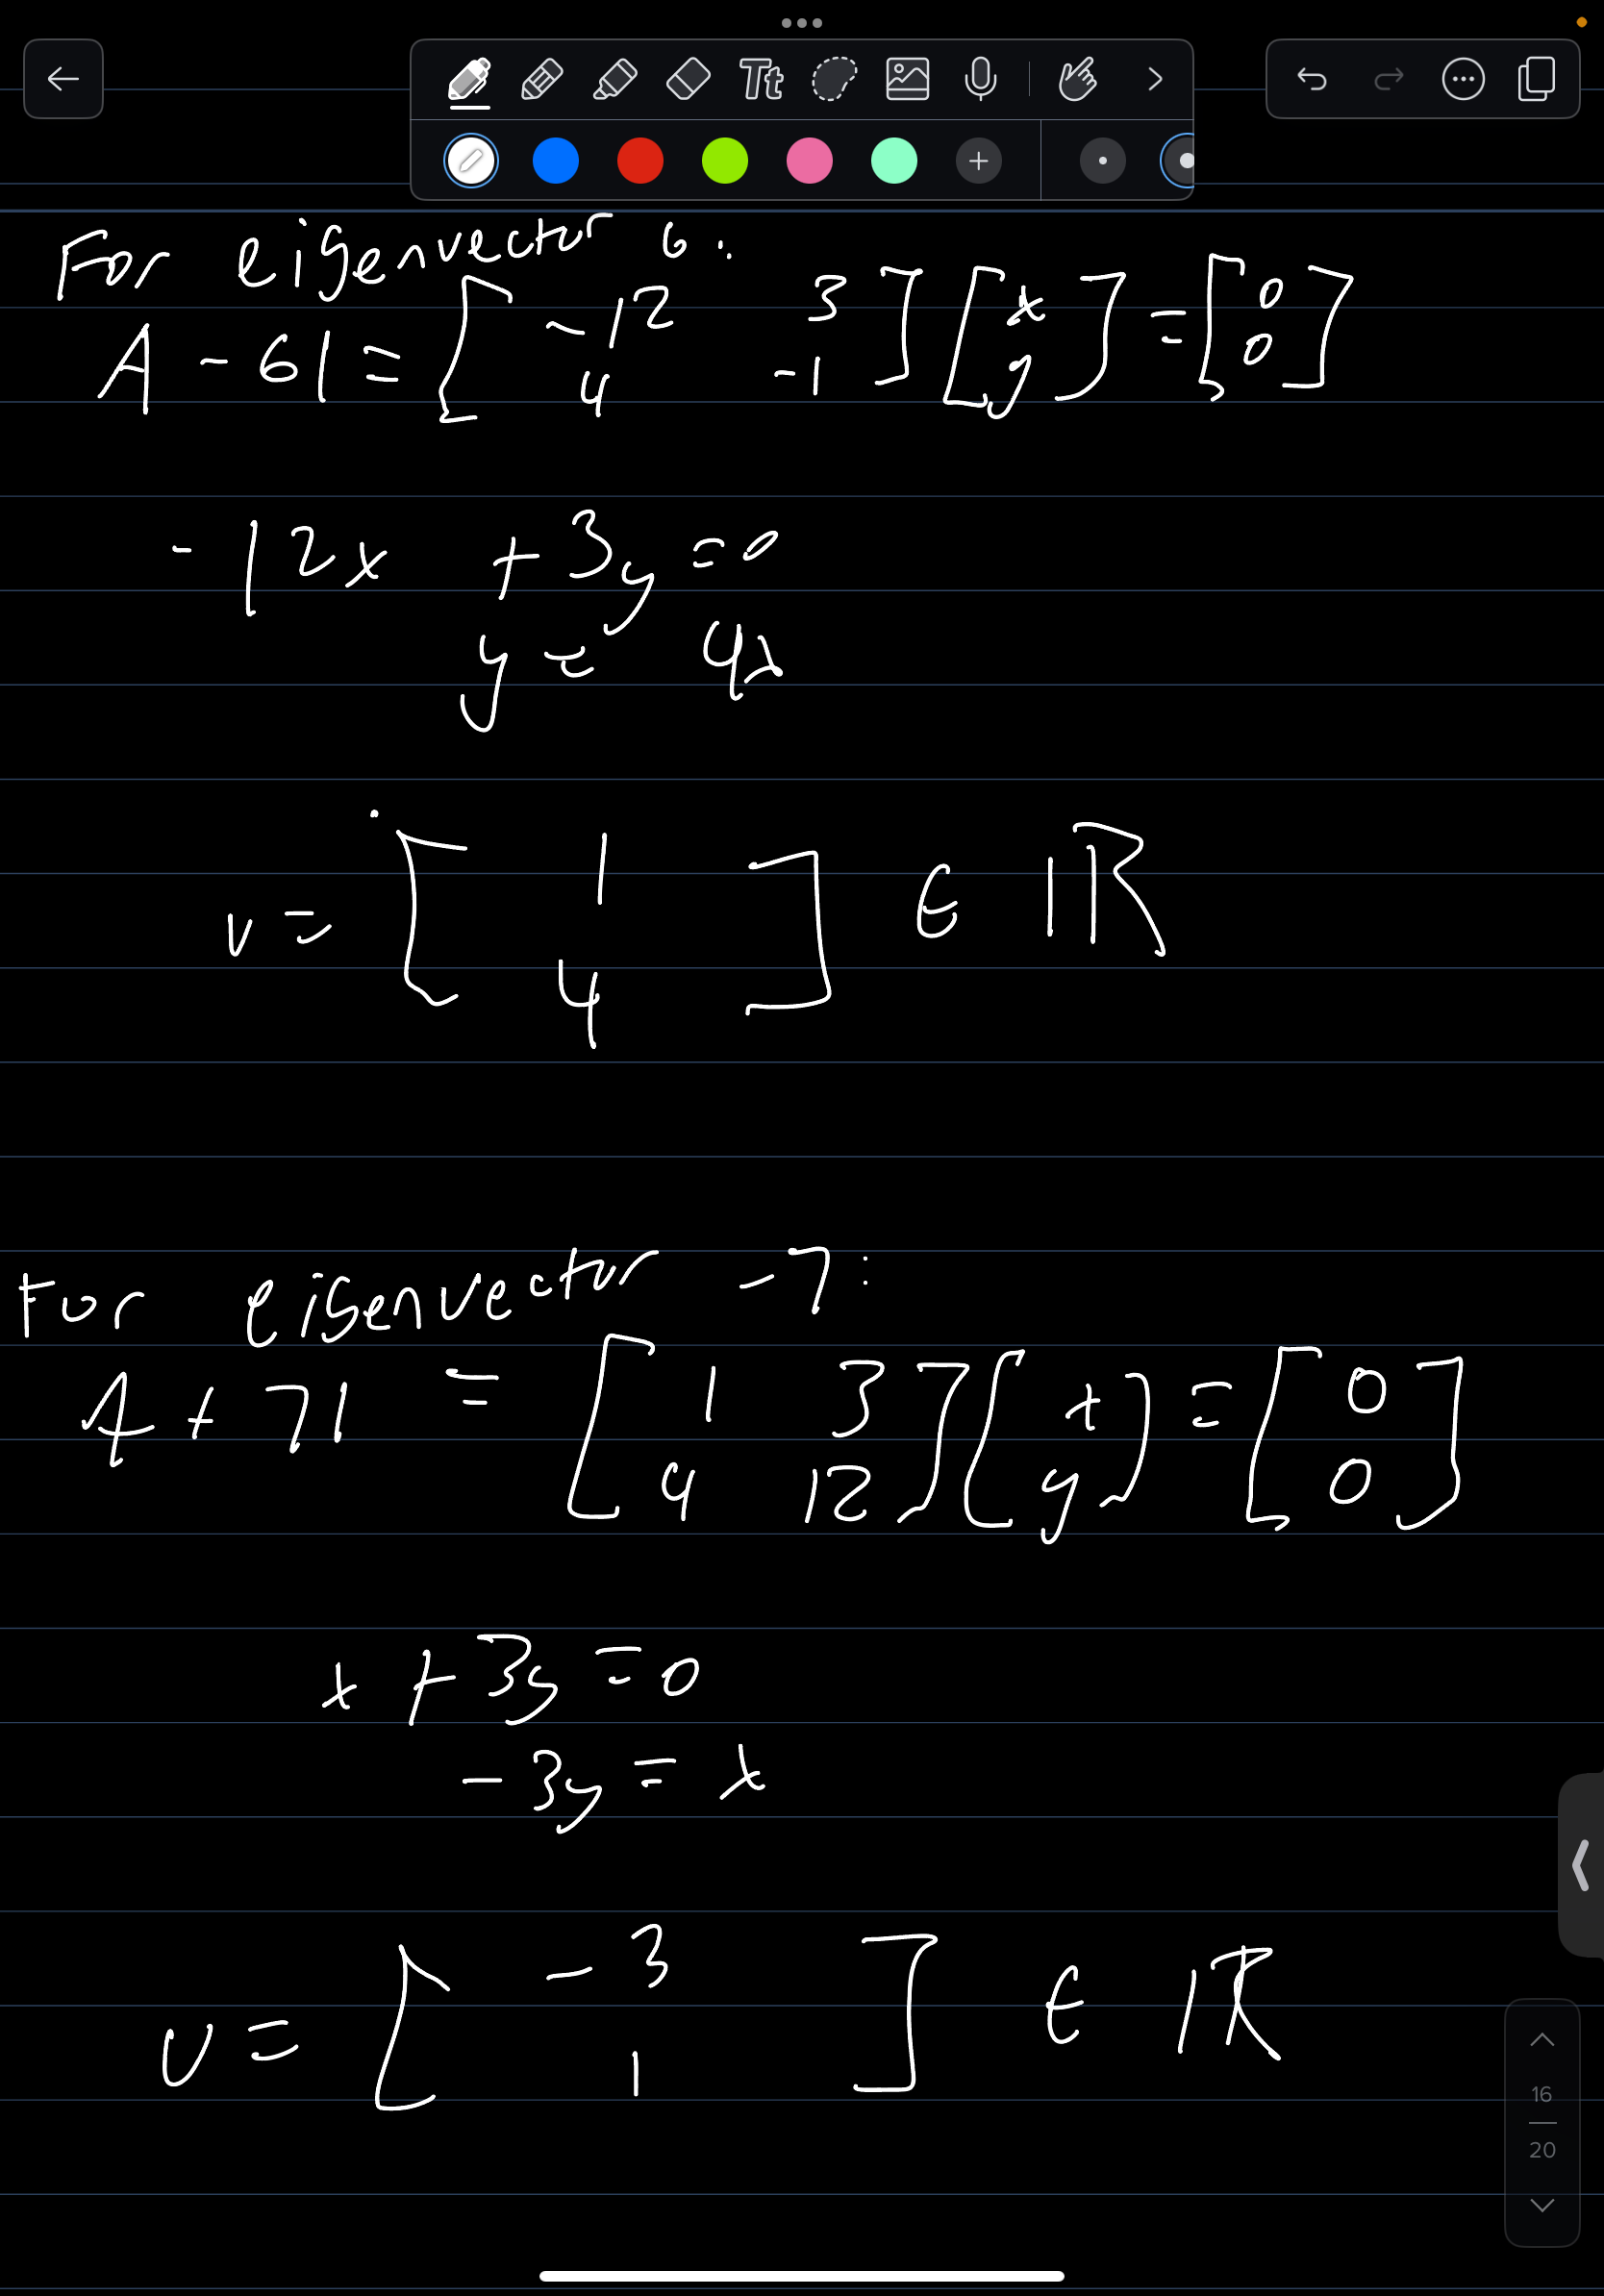 Tt
For eigenvector 6:
A - 6I = [ -12 3 ] [ x ] = [ 0 ]
4 -1 y 0
-12x + 3y = 0
y = 4x
v = [ 1 ] ∈ ℝ
4
For eigenvector -7:
A + 7I = [ 1 3 ] [ x ] = [ 0 ]
4 12 y 0
x + 3y = 0
-3y = x
v = [ -3 ] ∈ ℝ
1
16
20